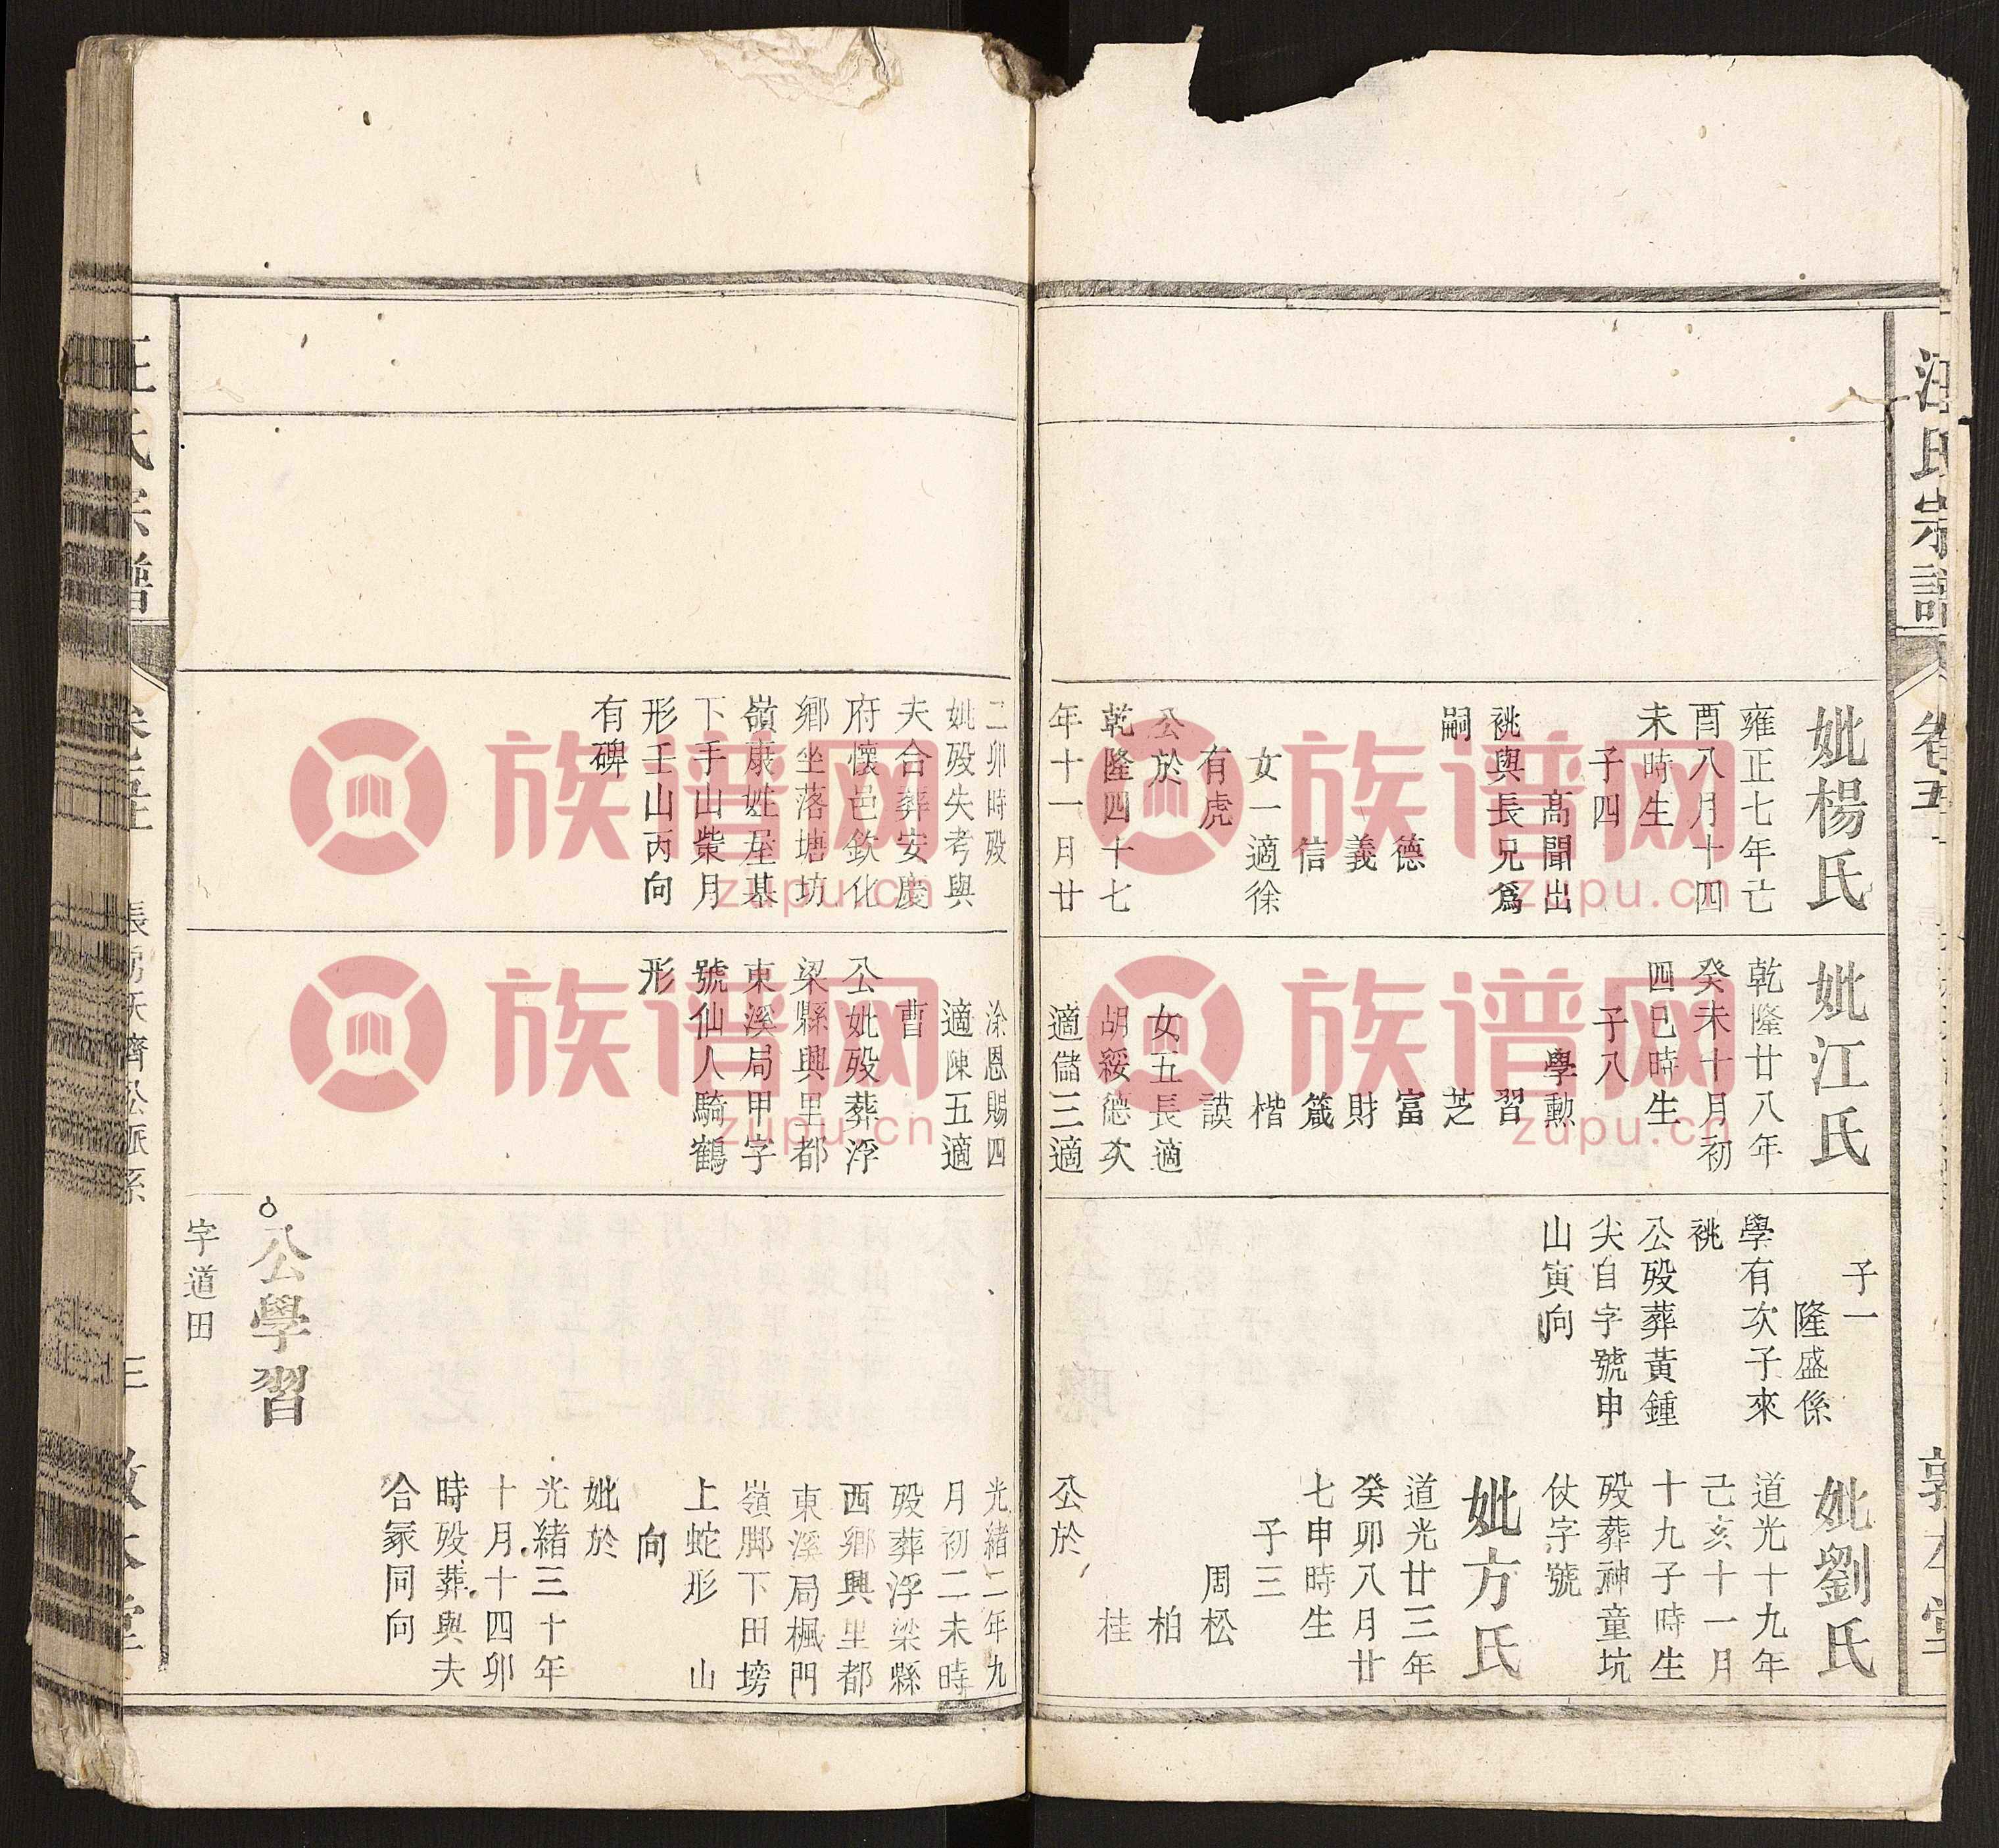 汪氏宗譜
卷五
妣楊氏
雍正七年亡
酉八月十四
未時生
子四
高聞出
祧與長兄爲
嗣
德
義
信
女一適徐
有虎
公於
乾隆四十七
年十一月廿
妣江氏
乾隆廿八年
癸未十月初
四巳時生
子八
學勲
習
芝
富
財
箴
楷
謨
女五長適
胡綏德次
適儲三適
子一
隆盛係
學有次子來
祧
公殁葬黃鍾
尖自字號申
山寅向
妣劉氏
道光十九年
己亥十一月
十九子時生
殁葬神童坑
仗字號
妣方氏
道光廿三年
癸卯八月廿
七申時生
子三
周松
柏
桂
公於
二卯時殁
妣殁失考與
夫合葬安慶
府懷邑欽化
鄉坐落塘坊
嶺康姓屋基
下手山柴月
形壬山丙向
有碑
涂恩賜四
適陳五適
曹
公妣殁葬浮
梁縣興里都
東溪局甲字
號仙人騎鶴
形
光緒二年九
月初二未時
殁葬浮梁縣
西鄉興里都
東溪局楓門
嶺脚下田塝
上蛇形 山
向
妣於
光緒三十年
十月十四卯
時殁葬與夫
合冢同向
公學習
字道田
族谱网
zupu.cn
族谱网
zupu.cn
族谱网
zupu.cn
族谱网
zupu.cn